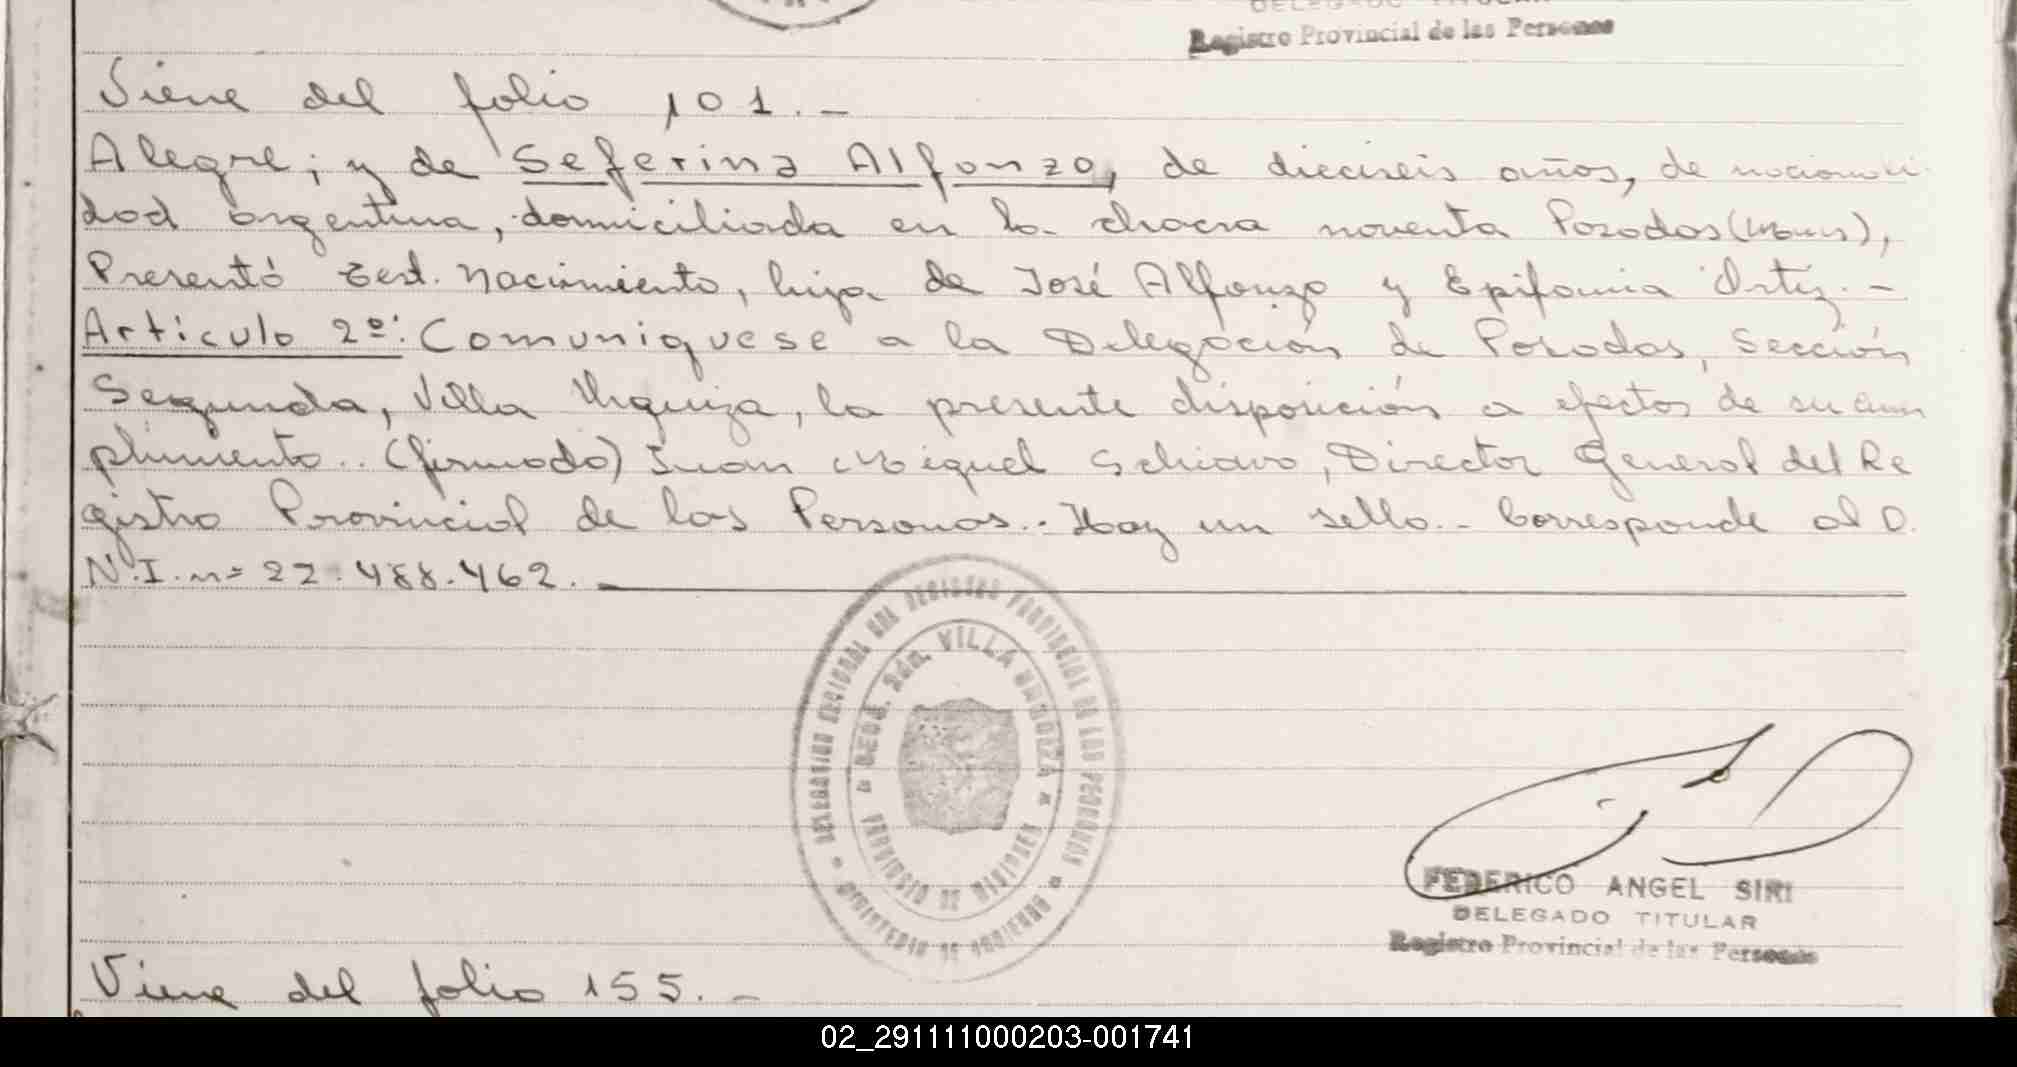 DELEGADO TITULAR
Registro Provincial de las Personas
Viene del folio 101.-
Alegre; y de Seferina Alfonzo, de dieciseis años, de nacionali
dad argentina, domiciliada en la chacra noventa Posadas (Mnes),
Presentó Test. Nacimiento, hija de José Alfonzo y Epifania Ortiz.-
Artículo 2º: Comuniquese a la Delegación de Posadas, Sección
Segunda, Villa Urquiza, la presente disposición a efectos de su cum
plimiento.. (firmado) Juan Miguel Schiavo, Director General del Re
gistro Provincial de las Personas.. Hay un sello.- Corresponde al D.
N.I. nº 22.488.462.
DELEGACION REGIONAL DEL REGISTRO PROVINCIAL DE LAS PERSONAS
MINISTERIO DE GOBIERNO
SECC. 2da. VILLA URQUIZA
PROVINCIA DE MISIONES
FEDERICO ANGEL SIRI
DELEGADO TITULAR
Registro Provincial de las Personas
Viene del folio 155.-
02_291111000203-001741